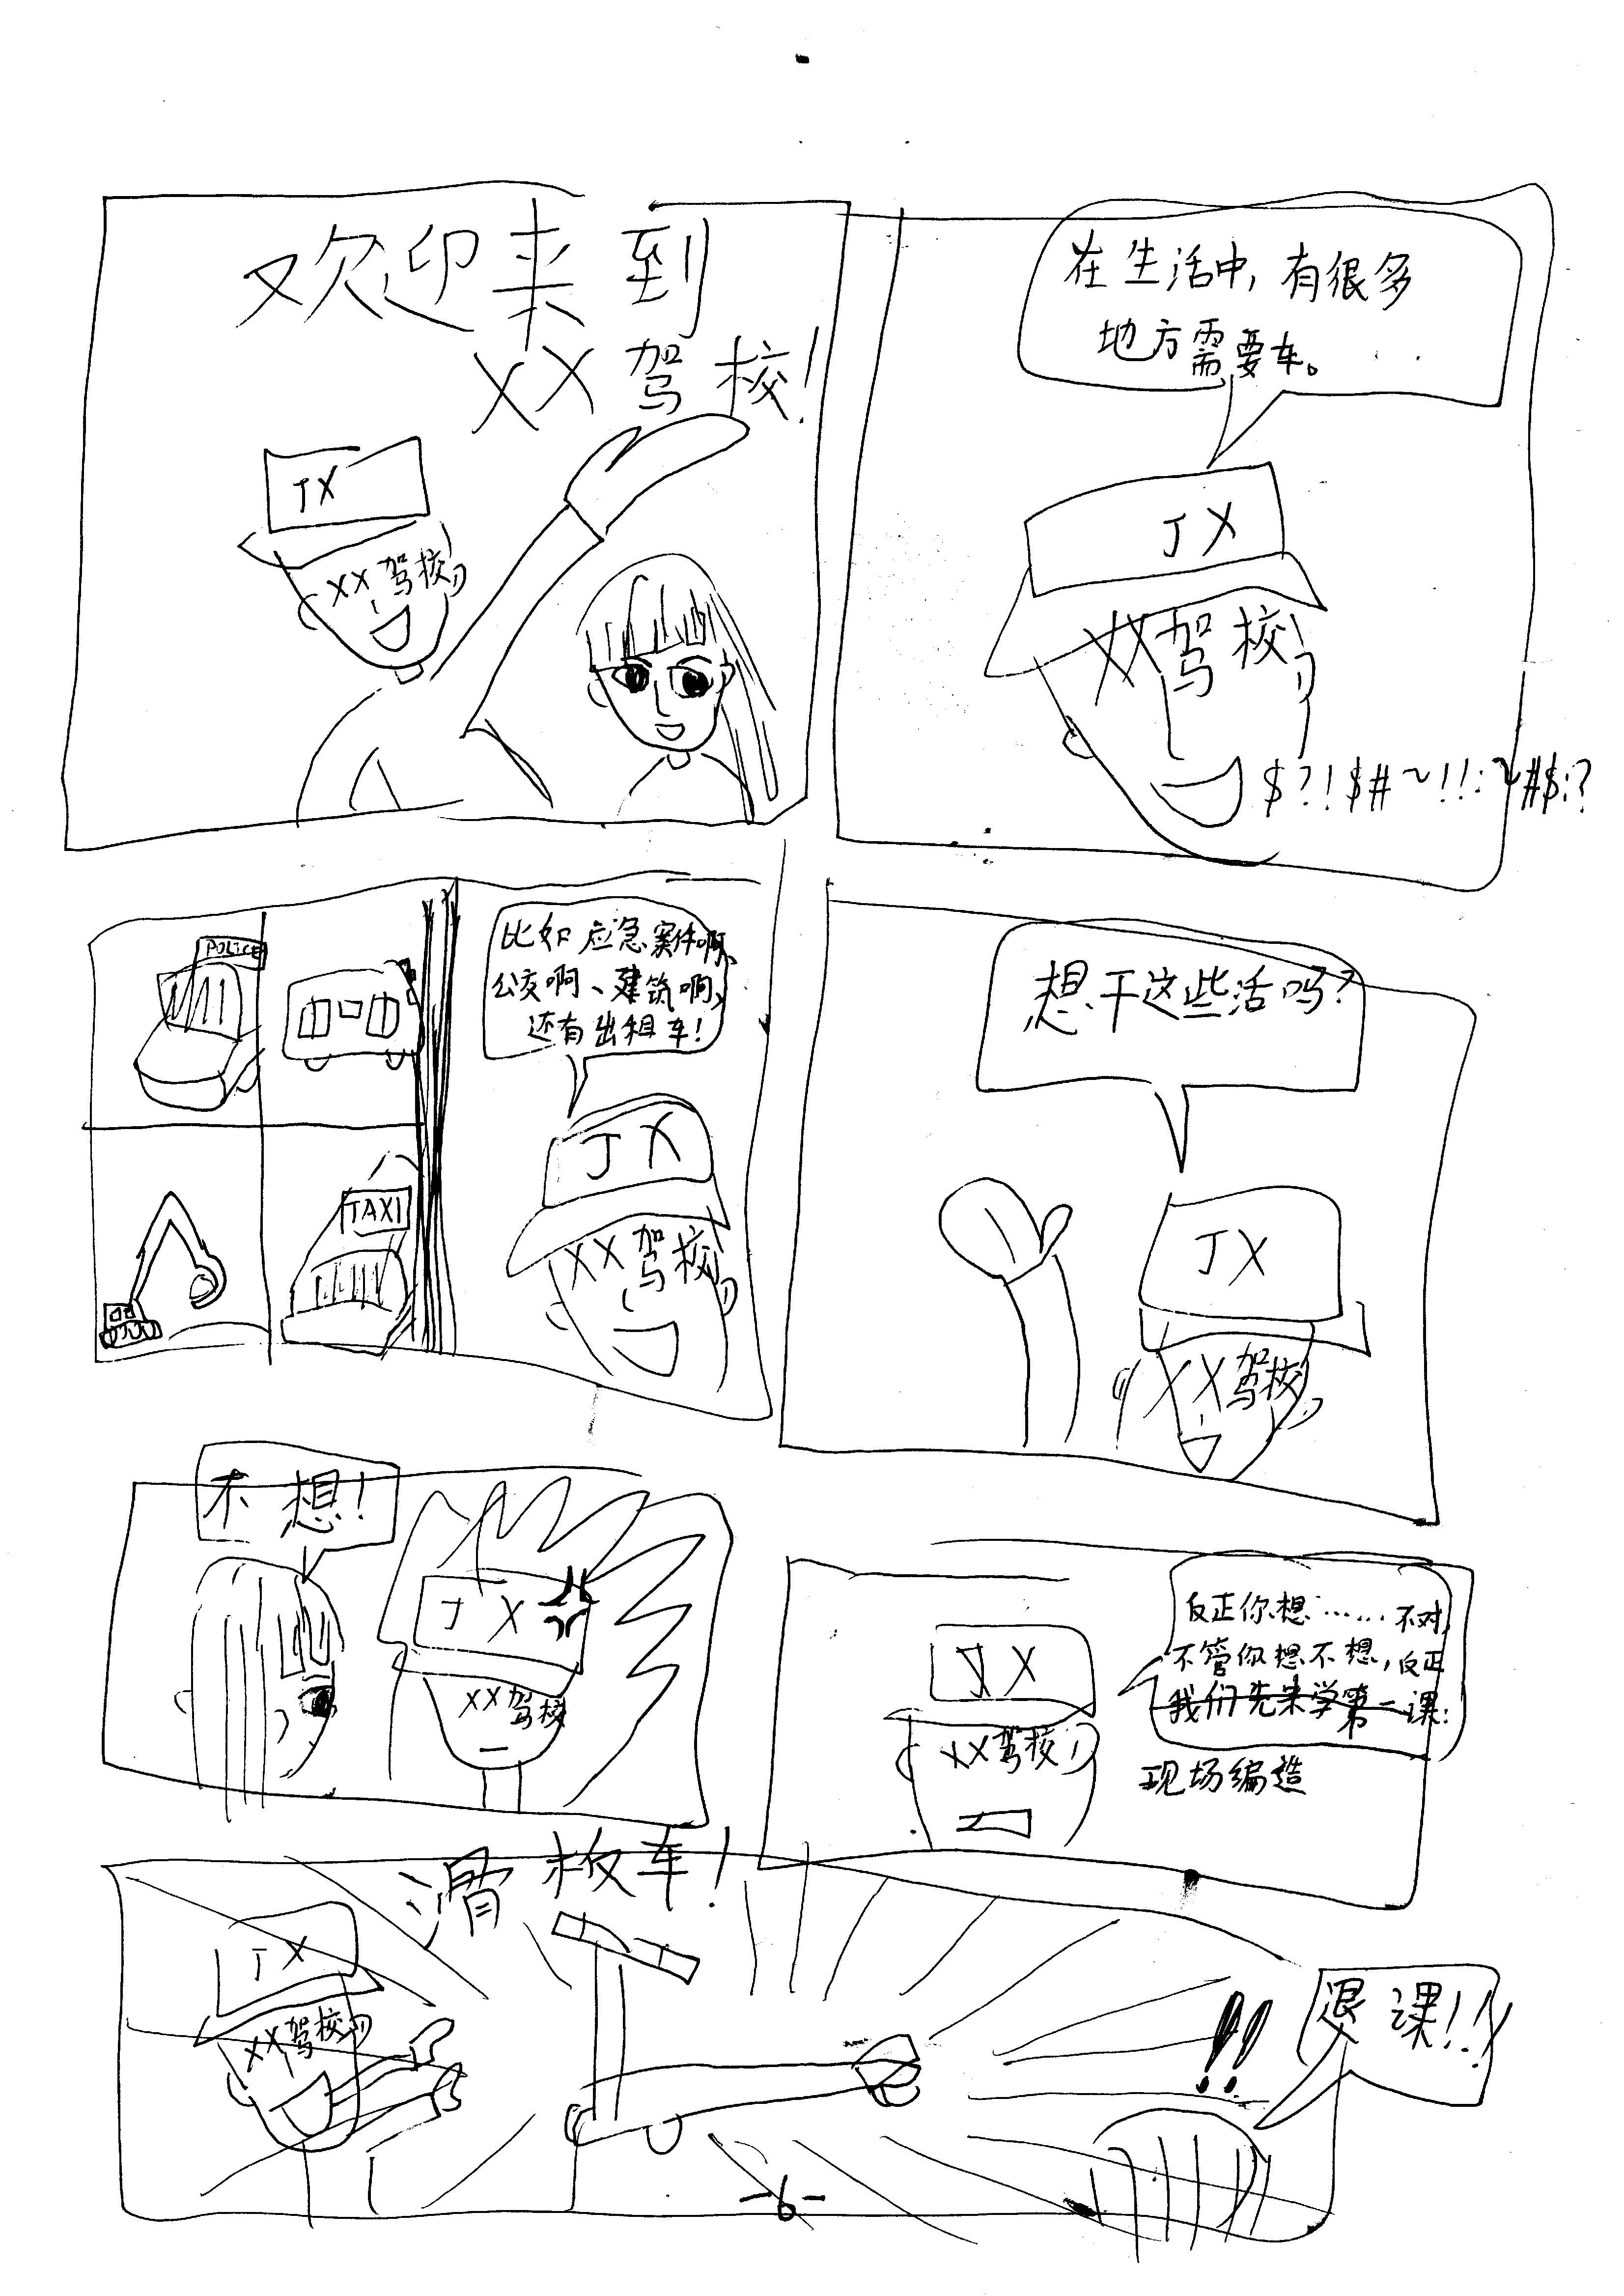 欢迎来到
XX驾校!
JX
XX驾校
在生活中,有很多
地方需要车。
JX
XX驾校
$?!$#~!!:~#$:?
POLICE
TAXI
比如应急案件啊、
公交啊、建筑啊、
还有出租车!
JX
XX驾校
想干这些活吗?
JX
XX驾校
不想!
JX
XX驾校
反正你想……不对,
不管你想不想,反正
我们先来学第一课:
现场编造
JX
XX驾校
滑板车!
JX
XX驾校
!!
退课!!
-6-